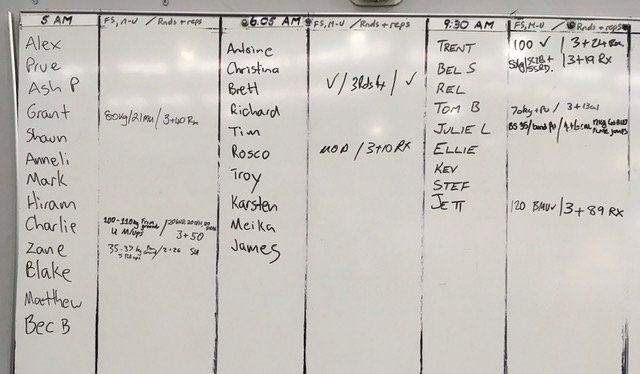 5 AM FS, M-U / Rnds + reps 6.05 AM FS, M-U / Rnds + reps 9:30 AM FS, M-U / Rnds + reps
Alex
Prue
Ash P
Grant 80kg/21MU/3+40 Rx
Shaun
Anneli
Mark
Hiram
Charlie 100-110kg From ground
4 M/ups 3+50
Zane 35-37kg /2+26 SU
Blake
Matthew
Bec B
Antoine
Christina
Brett √/3Rds Rx/√
Richard
Tim
Rosco MOD / 3+10 RX
Troy
Karsten
Meika
James
TRENT 100 √ / 3+24 Rx
BEL S / 3+19 Rx
REL
TOM B 70kg + PU / 3+13
JULIE L BS 35/band PU
ELLIE
KEV
STEF
JETT 120 BMU√/3+89 RX